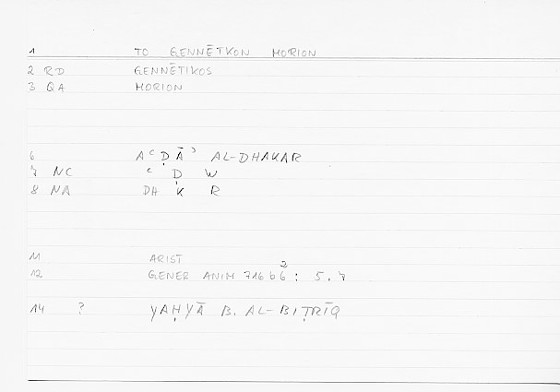 1 TO GENNĒTKON MORION
2 RD GENNĒTIKOS
3 QA MORION
6 AʿḌĀʾ AL-DHAKAR
7 NC ʿ Ḍ W
8 NA DH K R
11 ARIST
12 GENER ANIM 716 b 6² : 5.7
14 ? YAḤYĀ B. AL-BIṬRĪQ